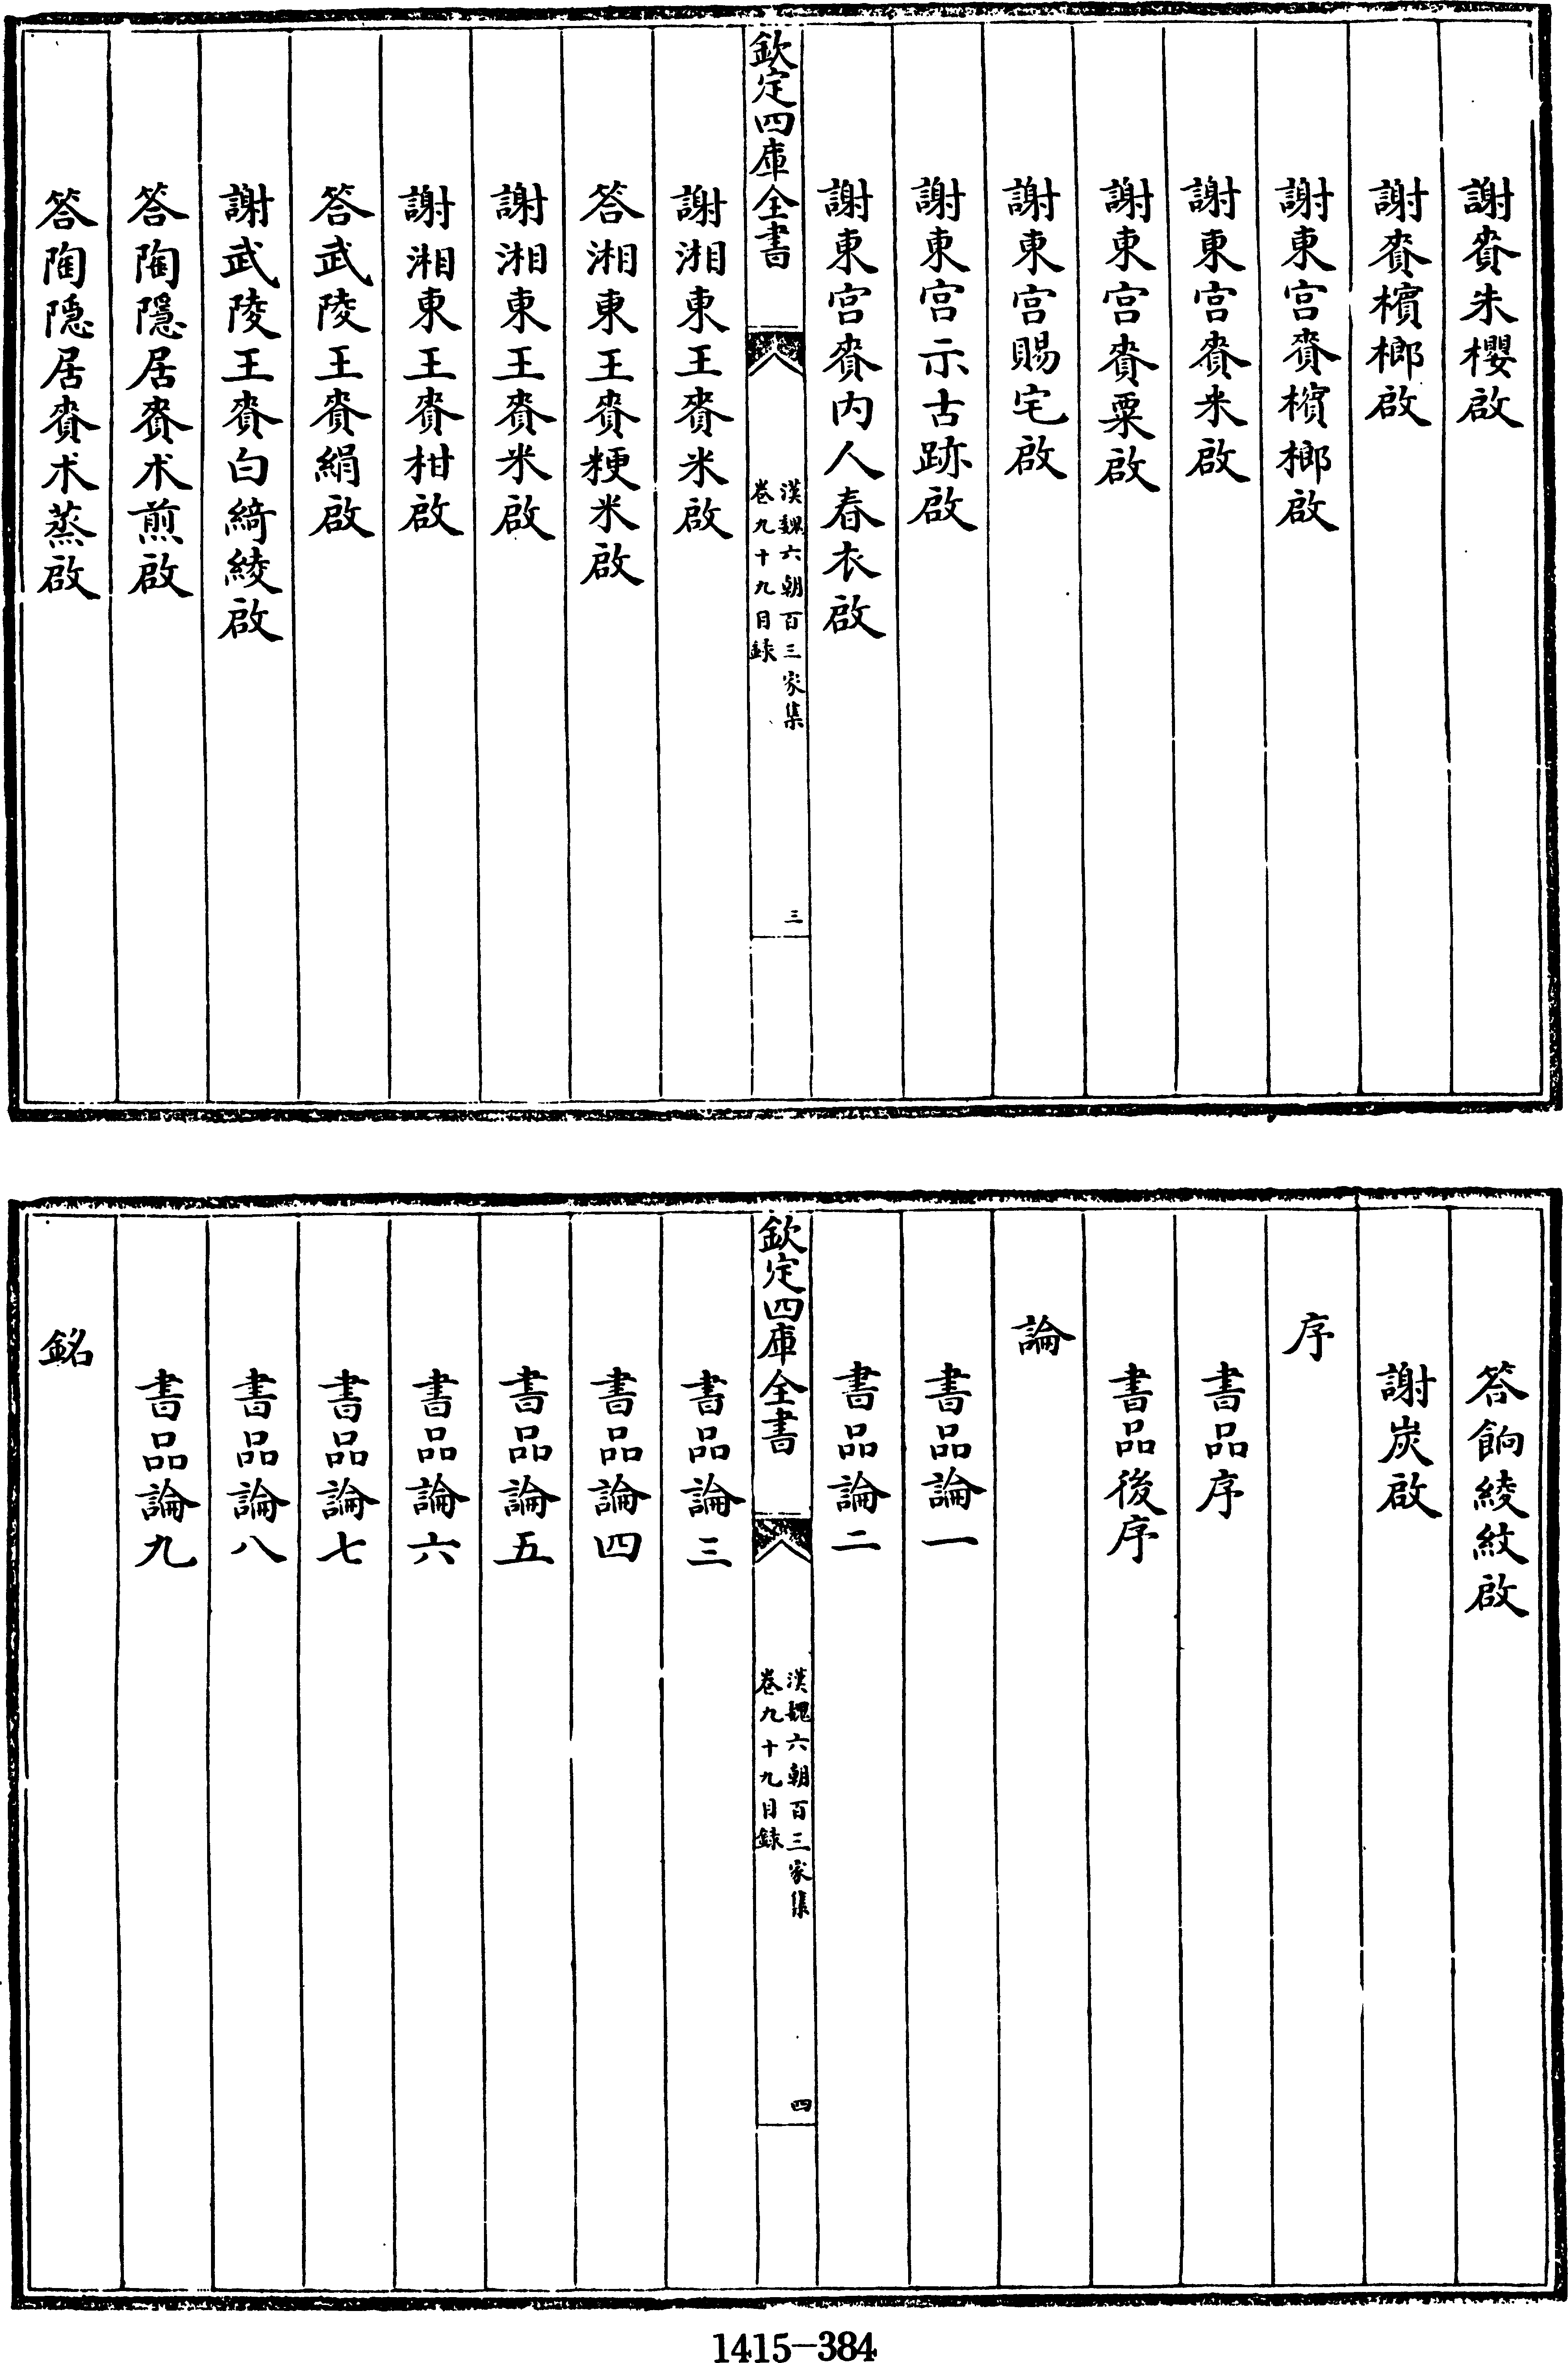 謝賚朱櫻啟
謝賚檳榔啟
謝東宮賚檳榔啟
謝東宮賚米啟
謝東宮賚粟啟
謝東宮賜宅啟
謝東宮示古跡啟
謝東宮賚内人春衣啟
欽定四庫全書
漢魏六朝百三家集
卷九十九目録
三
謝湘東王賚米啟
答湘東王賚粳米啟
謝湘東王賚米啟
謝湘東王賚柑啟
答武陵王賚絹啟
謝武陵王賚白綺綾啟
答陶隱居賚术煎啟
答陶隠居賚术蒸啟
答餉綾紋啟
謝炭啟
序
書品序
書品後序
論
書品論一
書品論二
欽定四庫全書
漢魏六朝百三家集
卷九十九目録
四
書品論三
書品論四
書品論五
書品論六
書品論七
書品論八
書品論九
銘
1415-384